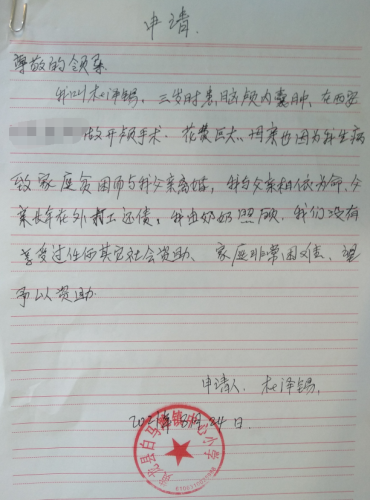 申请
尊敬的领导
我叫杜泽锡,三岁时患脑颅内囊肿,在西安
做开颅手术,花费巨大,母亲也因为我生病
致家庭贫困而与我父亲离婚,我与父亲相依为命,父
亲长年在外打工还债,我由奶奶照顾,我们没有
享受过任何其它社会资助、家庭非常困难,望
予以资助.
申请人、杜泽锡.
2021年8月24日.
县白马镇中心小学